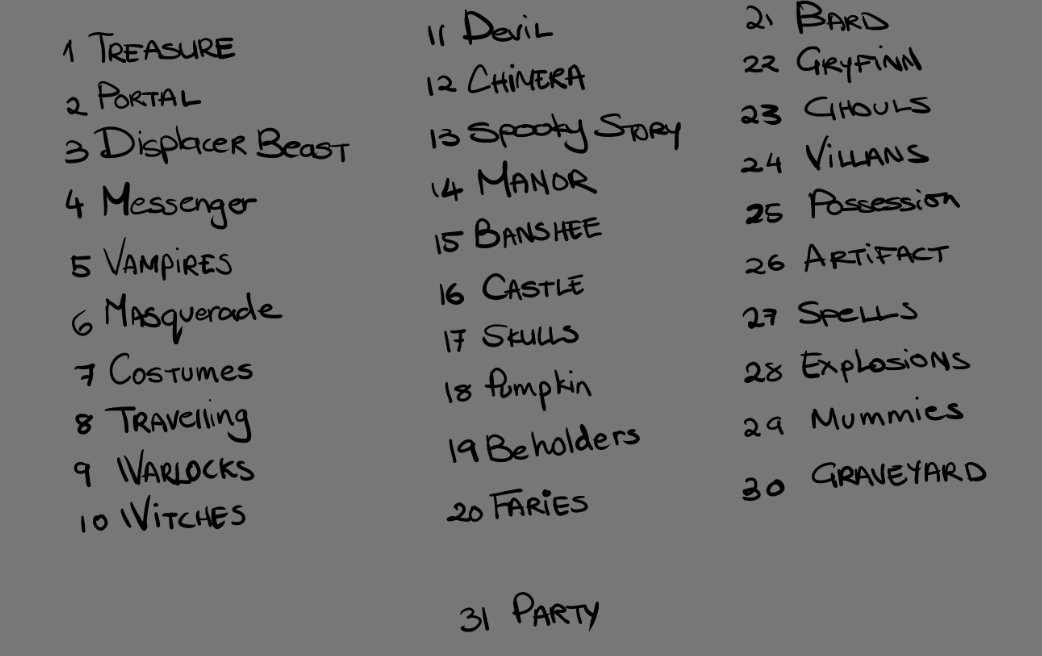 1 TREASURE
2 PORTAL
3 Displacer Beast
4 Messenger
5 VAMPIRES
6 Masquerade
7 Costumes
8 Travelling
9 WARLOCKS
10 WITCHES
11 Devil
12 CHIMERA
13 Spooky Story
14 MANOR
15 BANSHEE
16 CASTLE
17 SKULLS
18 Pumpkin
19 Beholders
20 FARIES
21 BARD
22 GRYFINN
23 GHOULS
24 VILLANS
25 Possession
26 ARTIFACT
27 SPELLS
28 EXPLOSIONS
29 Mummies
30 GRAVEYARD
31 PARTY